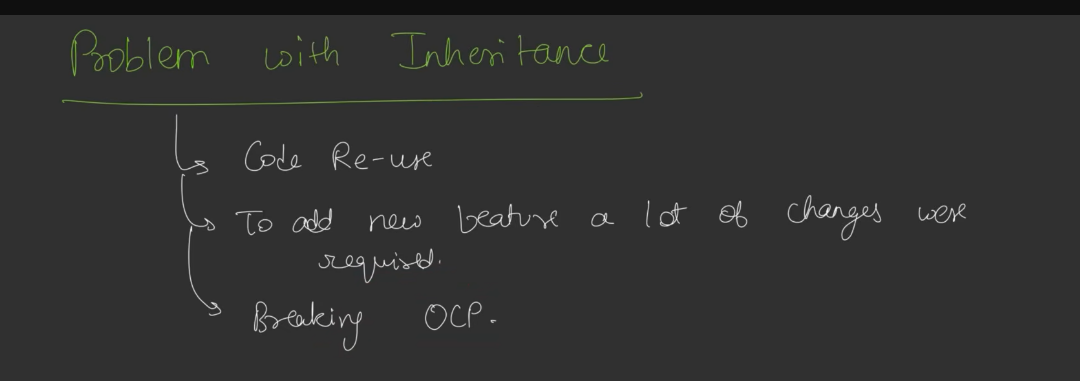 Problem with Inheritance
Code Re-use
To add new feature a lot of changes were
required.
Breaking OCP.